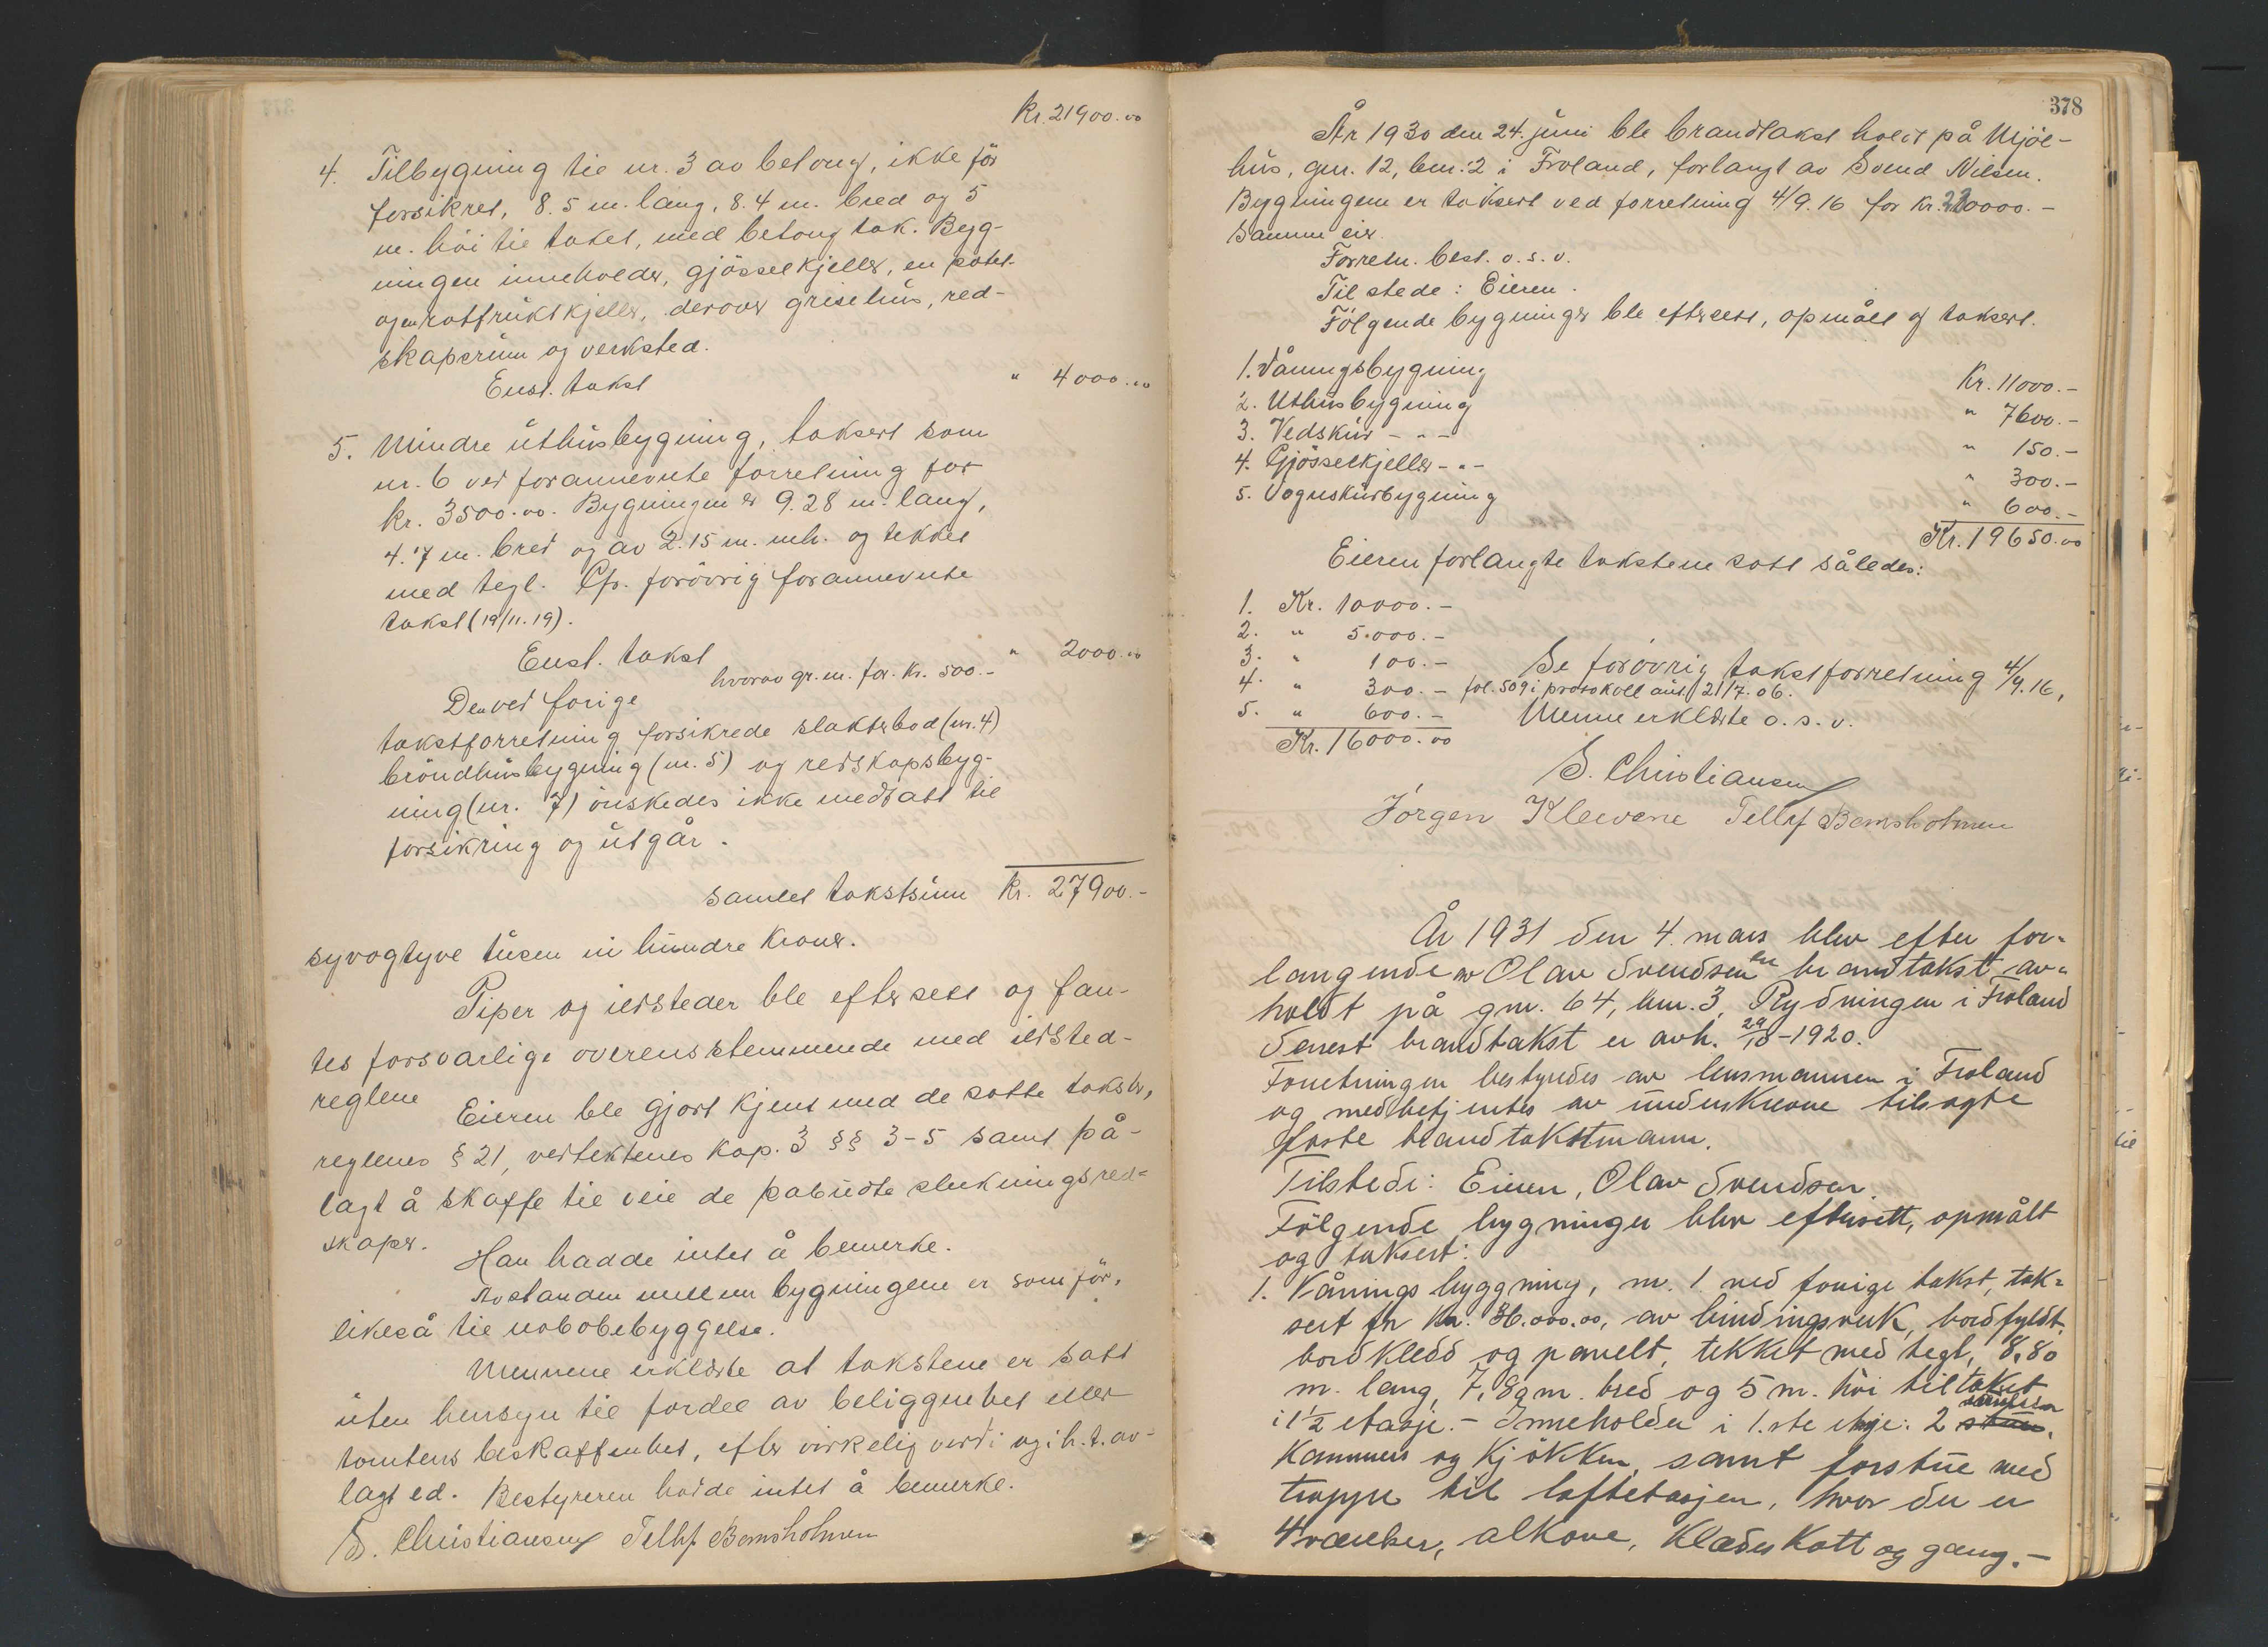 Kr. 21900.00
4. Tilbygning til nr. 3 av betong, ikke før
forsikret, 8.5 m. lang, 8.4 m. bred og 5
m. høi til taket, med betong tak. Byg-
ningen inneholder, gjødselkjeller, en potet-
og en rotfruktkjeller, derover grisehus, red-
skapsrum og verksted.
Enst. takst " 4000.00
5. Mindre uthusbygning, taksert som
nr. 6 ved forannevnte forretning for
kr. 3500.00. Bygningen er 9.28 m. lang,
4.7 m. bred og av 2.15 m. mh. og tekket
med tegl. Cfr. forøvrig forannevnte
takst (19/11.19).
Enst. takst " 2000.00
hvorav gr.m. for kr. 500.-
Den ved forige
takstforretning forsikrede slakterbod (nr. 4)
brøndhusbygning (nr. 5) og redskapsbyg-
ning (nr. 7) ønskedes ikke medtatt til
forsikring og utgår.
Samlet takstsum Kr. 27900.-
syvogtyve tusen ni hundre kroner.
Piper og ildsteder ble eftersett og fan-
tes forsvarlige overensstemmende med ildsted-
reglene
Eieren ble gjort kjent med de satte takster,
reglenes § 21, vedtektenes kap. 3 §§ 3-5 samt på-
lagt å skaffe til veie de påbudte slukningsred-
skaper.
Han hadde intet å bemerke.
Avstanden mellem bygningene er som før,
likeså til nabobebyggelse.
Mennene erklærte at takstene er satt
uten hensyn til fordel av beliggenhet eller
tomtens beskaffenhet, efter virkelig verdi og i h.t. av-
lagt ed. Bestyreren hadde intet å bemerke.
S. Christiansen Tellef Bomsholmen
378
År 1930 den 24. juni ble brandtakst holdt på Mjøl-
hus, gnr. 12, bnr. 2 i Froland, forlangt av Svend Nilsen.
Bygningene er taksert ved forretning 4/9.16 for kr. 0000.-
Samme eier.
Forretn. best. o.s.v.
Tilstede: Eieren.
Følgende bygninger ble eftersett, opmålt og taksert.
1. Våningsbygning Kr. 11000.-
2. Uthusbygning " 7600.-
3. Vedskur - " - " 150.-
4. Gjødselkjeller - " - " 300.-
5. Vognskurbygning " 600.-
Kr. 19650.00
Eieren forlangte takstene satt således:
1. Kr. 10000.-
2. " 5000.-
3. " 100.- Se forøvrig takstforretning 4/9.16,
4. " 300.- fol. 509 i protokoll aut. 21/7.06.
5. " 600.- Menne erklærte o.s.v.
Kr. 16000.00
S. Christiansen
Jørgen Klevene Tellef Bomsholmen
År 1931 den 4. mars blev efter for-
langende av Olav Svendsen en brandtakst av-
holdt på gnr. 64, bnr. 3, Rydningen i Froland
Senest brandtakst er avh. 29/10-1920.
Forretningen bestyredes av lensmannen i Froland
og medbetjentes av underskrevne tilsagte
faste brandtakstmann.
Tilstede: Eieren, Olav Svendsen.
Følgende bygninger blev eftersett, opmålt
og taksert:
1. Vånings byggning, nr. 1 ved forrige takst, tak-
sert for kr. 36.000.00, av bindingsverk, bordfyldt,
bordkledd og panelt, tekket med tegl, 8,80
m. lang, 7,89 m. bred og 5 m. høi til taket
i 1½ etasje. - Inneholder i 1.ste etasje: 2 stuer,
kammers og kjøkken, samt forstue med
trappe til loftetasjen, hvor der er
4 værelser, alkove, klædeskott og gang.-